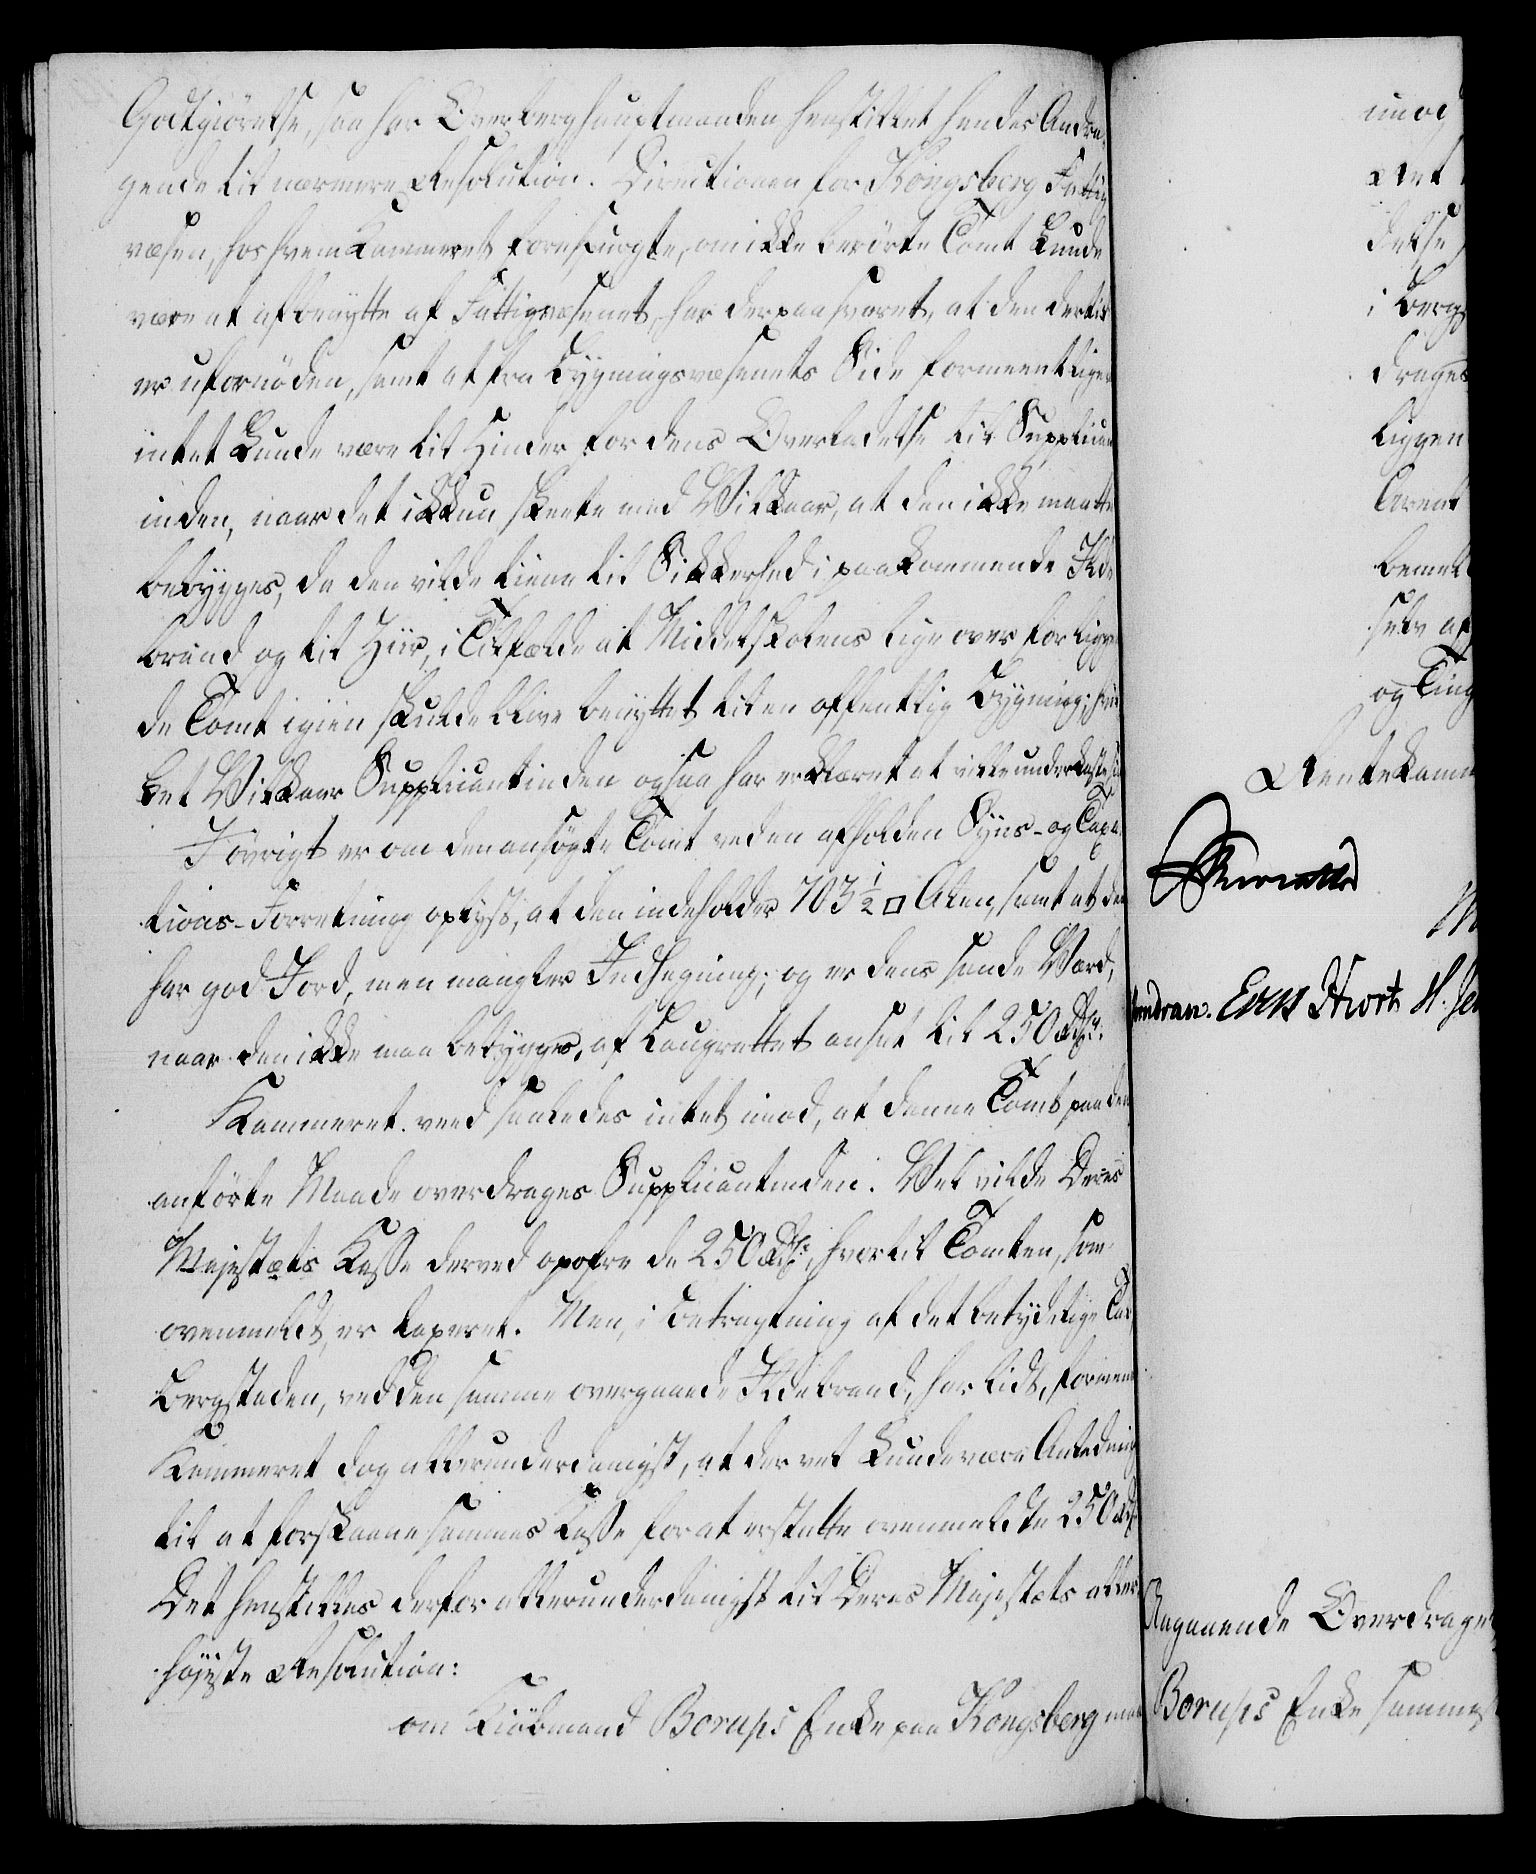 Godtgiörelse, saa har Overberghauptmanden henstillet hendes Andra-
gende til nærmere Resolution. Directionen for Kongsberg Fattig
væsen, hos hvem Kammeret forespurgte, om ikke berörte Tomt kunde
være at afbenytte af Fattigvæsenet, har derpaa svaret, at den dertil
er ufornöden, samt at fra Bygningsvæsenets Side formeentligen
intet kunde være til Hinder for dens Overladelse til Supplicant
inden, naar det ikkun skeete med Vilkaar, at den ikke maatte
bebygges, da den vilde tiene til Sikkerhed i paakommende Ilde
brand og til Ziir, i Tilfælde at Middelskolens lige over for liggen
de Tomt igien skulde blive benyttet til en offentlig Bygning; hvil
ket Vilkaar Supplicantinden ogsaa har erklæret at ville underkaste sig.
Iövrigt er om den ansögte Tomt ved en afholden Syns- og Taxa
tions-Forretning oplyst, at den indeholder 703 1/2 □ Alen, samt at den
har god Jord, men mangler Indhegning; og er dens sande Værd,
naar den ikke maa bebygges, af Laugrettet anset til 250 Rdlr.
Kammeret veed saaledes intet imod, at denne Tomt paa den
anförte Maade overdrages Supplicantinden. Vel vilde Deres
Majestæts Kasse derved opofre de 250 Rdlr, hvortil Tomten, som
ovenmeldt, er taxeret. Men, i Betragtning af det betydelige Tab
Bergstaden, ved den samme overgaaede Ildebrand, har lidt, formener
Kammeret dog allerunderdanigst, at der vel kunde være Anledning
til at forskaane sammes Kasse for at erstatte ovenmeldte 250 Rdlr
Det henstilles derfor allerunderdanigst til Deres Majestæts aller
höjeste Resolution:
om Kiöbmand Borups Enke paa Kongsberg maa
imod
delse
i Berg
drages
liggen
bemel
selv af
og Ting
Rentekamm
Hiort
Angaaende Overdrage
Borups Enke sammes